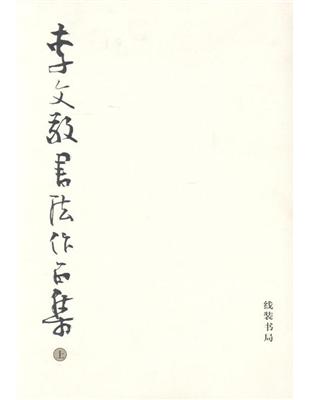 李文敬書法作品集
上
线装书局